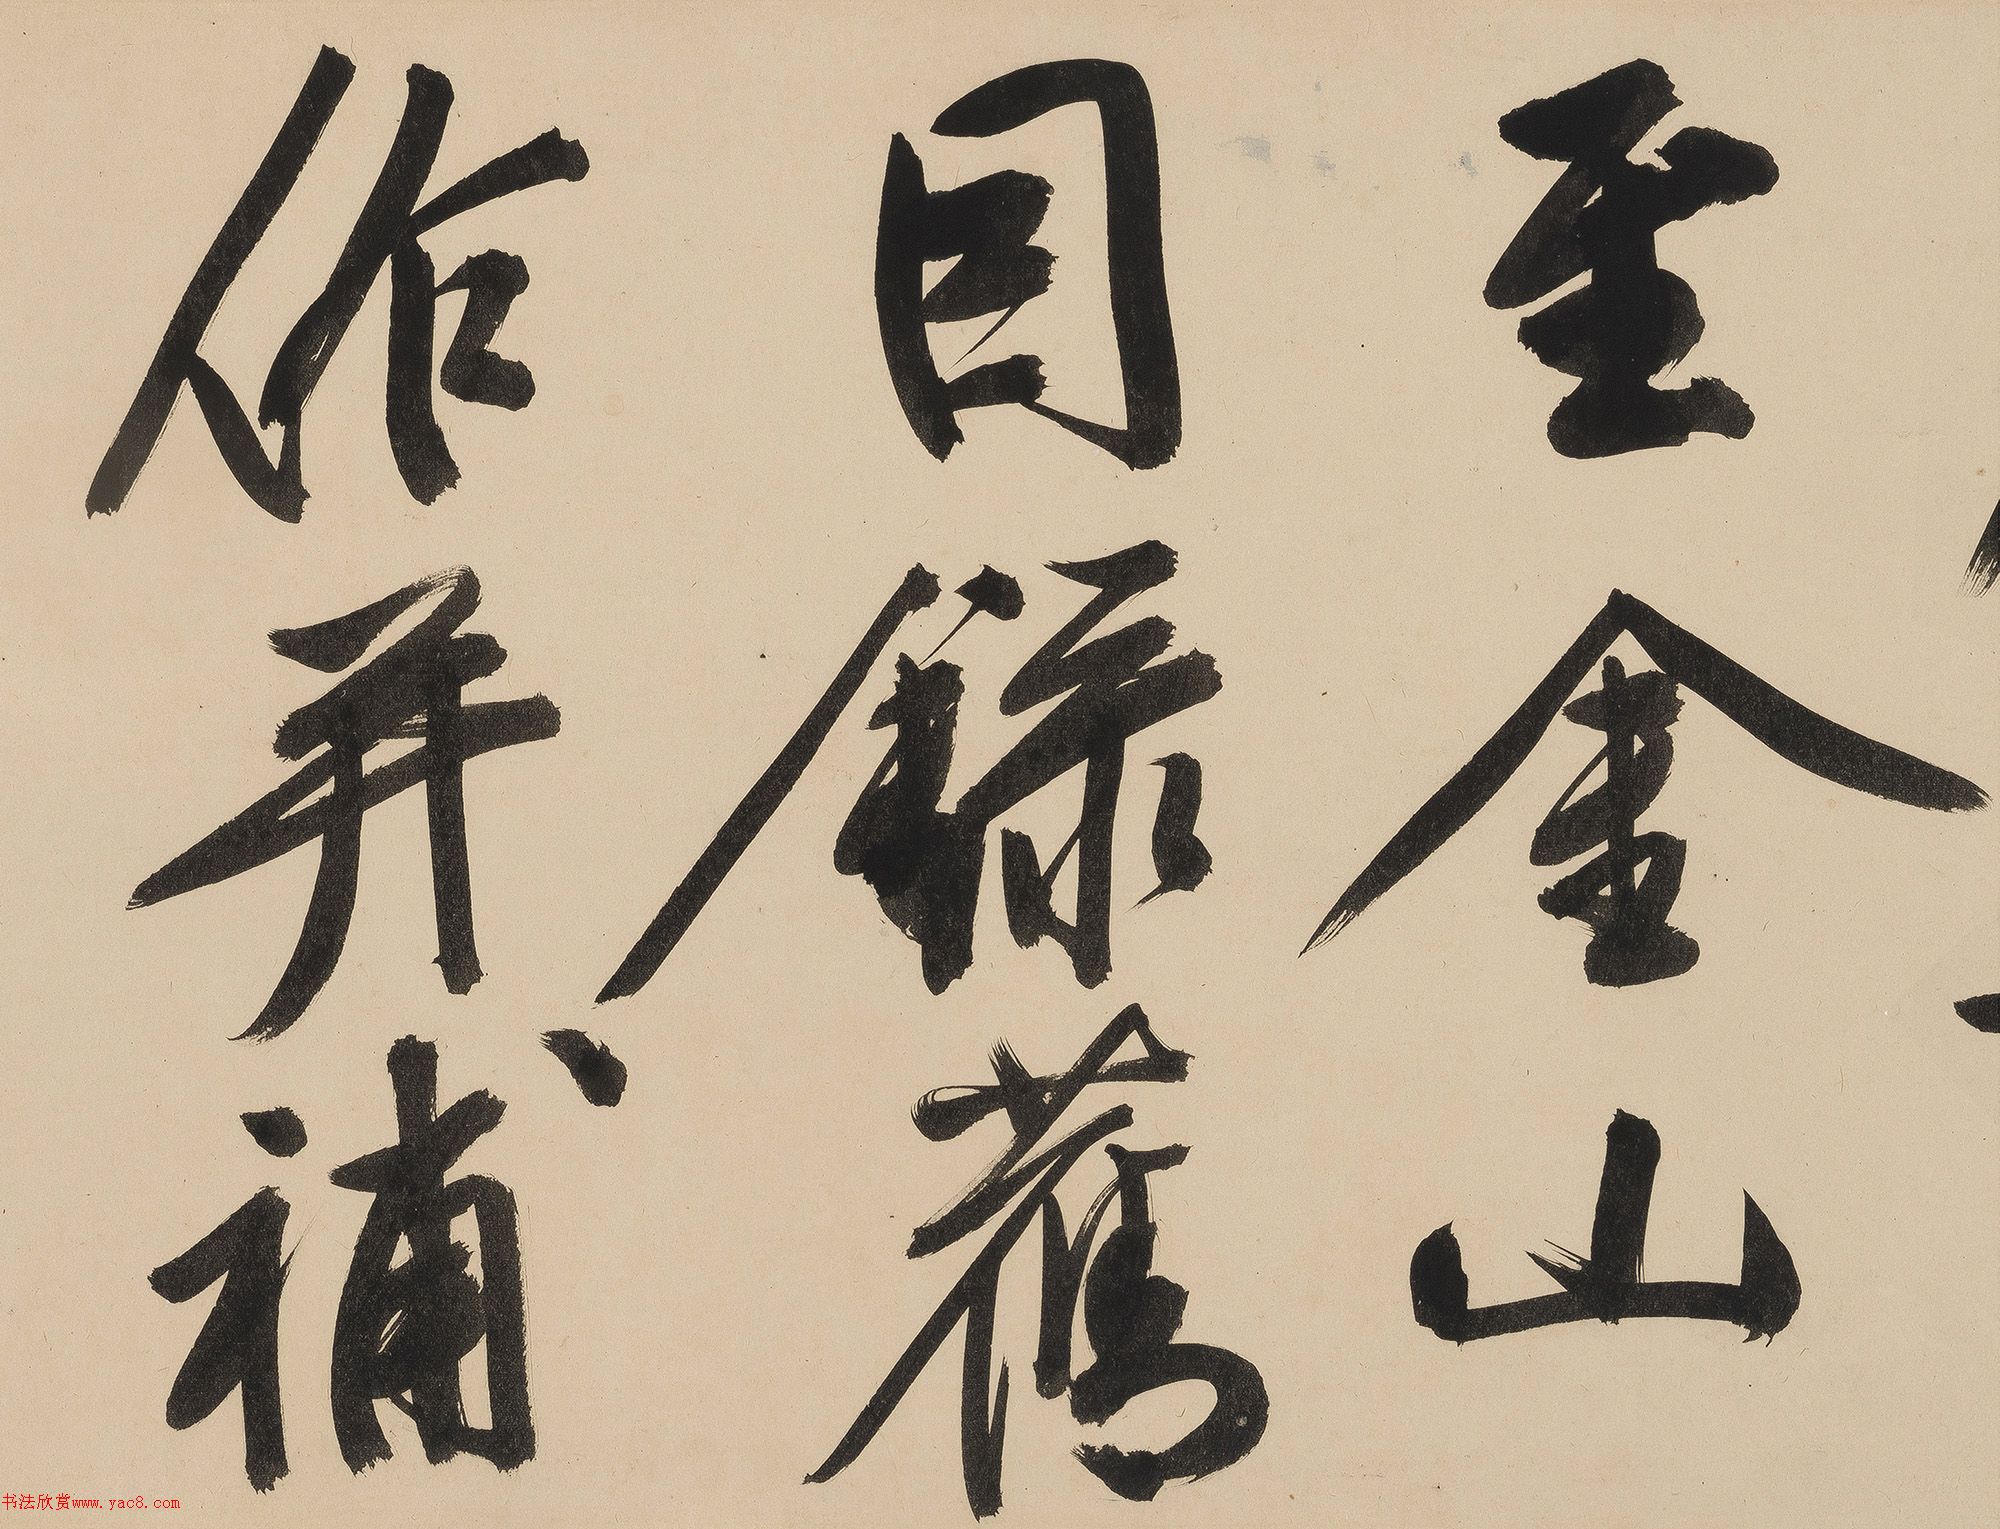 至金山
因錄舊
作并補
书法欣赏www.yac8.com